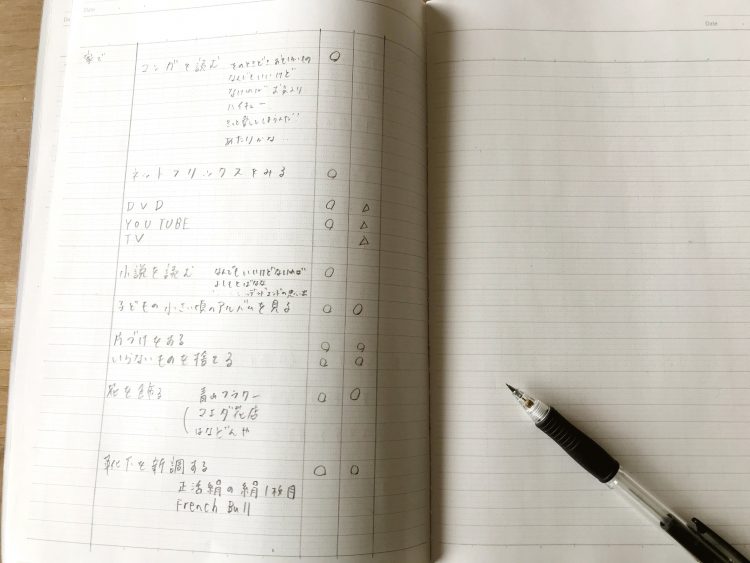 Date
Date
家で
マンガを読む そのときどきあたらしいもの ○
なんでもいいけど
ないのは お気に入り
ハイキュー
きっと愛してしまうんだ
あたりかな
ネットフリックスをみる ○
DVD ○ △
YOUTUBE ○ △
TV △
小説を読む なんでもいいけどないのは ○
よしもとばなな
デッドエンドの思い出
子どもの小さい頃のアルバムを見る ○ ○
片づけをする ○ ○
いらないものを捨てる ○ ○
花を飾る 青山フラワー ○ ○
マエダ花店
はなどんや
靴下を新調する ○ ○
正活絹の絹1枚目
French Bull